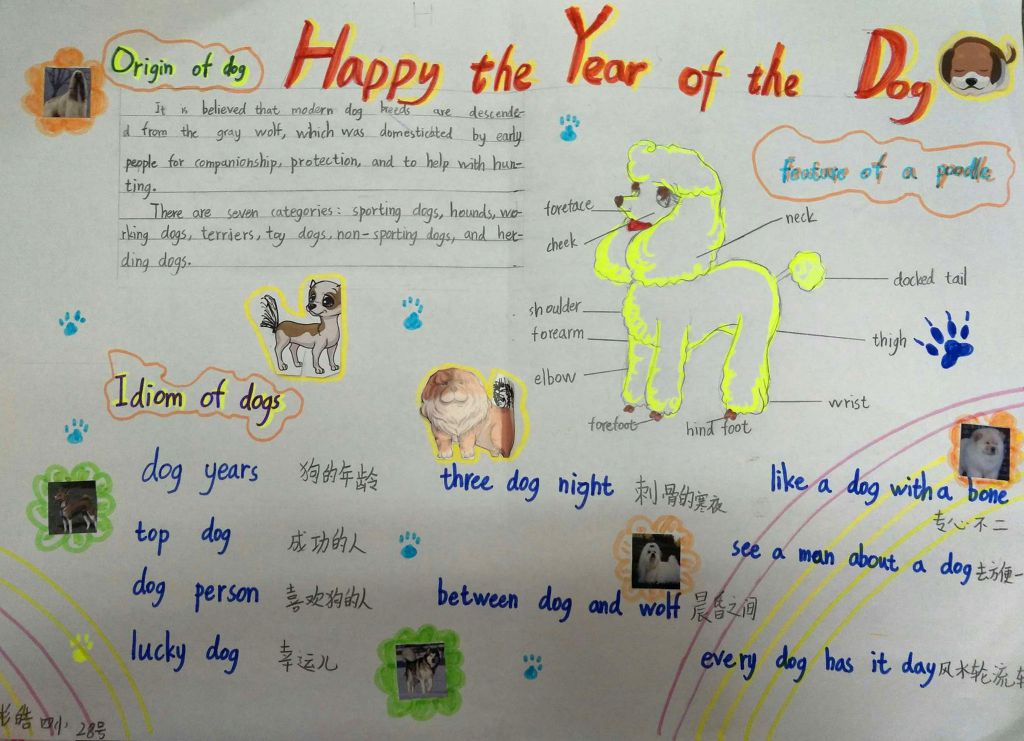 Happy the Year of the Dog
Origin of dog
It is believed that modern dog breeds are descende-
d from the gray wolf, which was domesticated by early
people for companionship, protection, and to help with hun-
ting.
There are seven categories: sporting dogs, hounds, wo-
rking dogs, terriers, toy dogs, non-sporting dogs, and her-
ding dogs.
feature of a poodle
foreface
cheek
neck
docked tail
shoulder
forearm
thigh
elbow
wrist
forefoot
hind foot
Idiom of dogs
dog years 狗的年龄
top dog 成功的人
dog person 喜欢狗的人
lucky dog 幸运儿
three dog night 刺骨的寒夜
between dog and wolf 晨昏之间
like a dog with a bone
专心不二
see a man about a dog 去方便一
every dog has it day 风水轮流转
皓 四小 28号